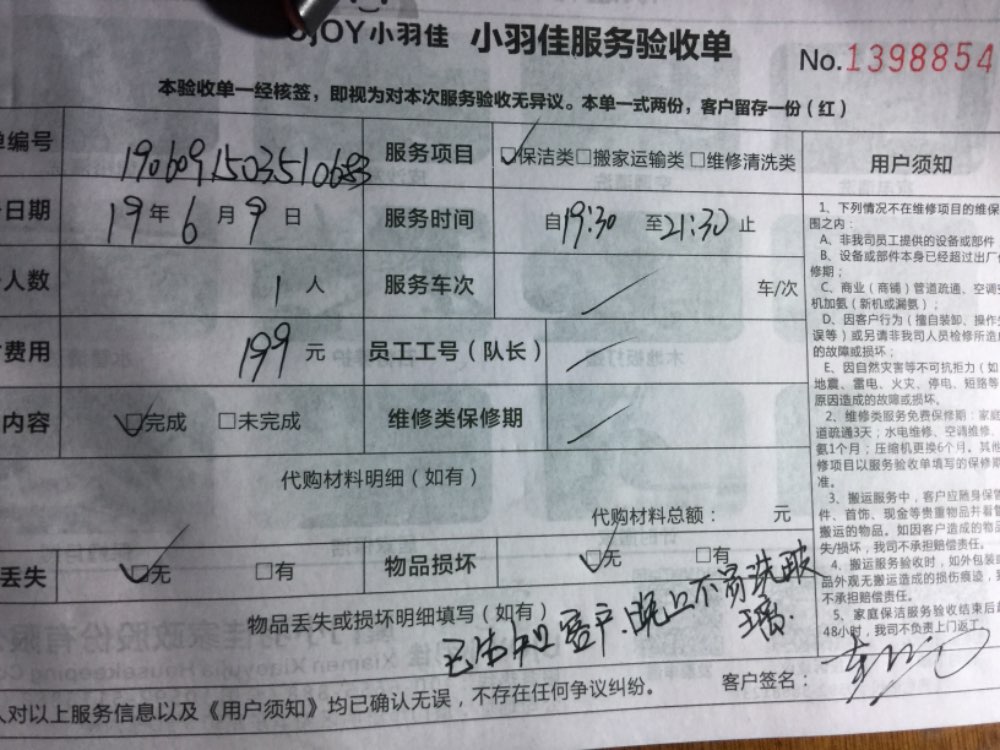 OjOY小羽佳 小羽佳服务验收单 No.1398854
本验收单一经核签，即视为对本次服务验收无异议。本单一式两份，客户留存一份（红）
单编号 1906091503510683 服务项目 保洁类 □搬家运输类 □维修清洗类 用户须知
日期 19年6月9日 服务时间 自19:30至21:30止
人数 1人 服务车次 车/次
费用 199元 员工工号（队长）
内容 完成 □未完成 维修类保修期
代购材料明细（如有）
代购材料总额： 元
丢失 □无 □有 物品损坏 □无 □有
物品丢失或损坏明细填写（如有）
客户.晚上不需洗玻
璃.
人对以上服务信息以及《用户须知》均已确认无误，不存在任何争议纠纷。 客户签名：
1、下列情况不在维修项目的维保
围之内：
A、非我司员工提供的设备或部件
B、设备或部件本身已经超过出厂
修期；
C、商业（商铺）管道疏通、空调
机加氨（新机或漏氨）；
D、因客户行为（擅自装卸、操作
误等）或另请非我司人员检修所造
的故障或损坏；
E、因自然灾害等不可抗拒力（如
地震、雷电、火灾、停电、短路等
原因造成的故障或损坏。
2、维修类服务免费保修期：家庭
道疏通3天；水电维修、空调维修、
氨1个月；压缩机更换6个月。其他
修项目以服务验收单填写的保修期
准。
3、搬运服务中，客户应随身保管
件、首饰、现金等贵重物品并看管
搬运的物品。如因客户造成的物品
失/损坏，我司不承担赔偿责任。
4、搬运服务验收时，如外包装
品外观无搬运造成的损伤痕迹，
不承担赔偿责任。
5、家庭保洁服务验收结束后
48小时，我司不负责上门返工。